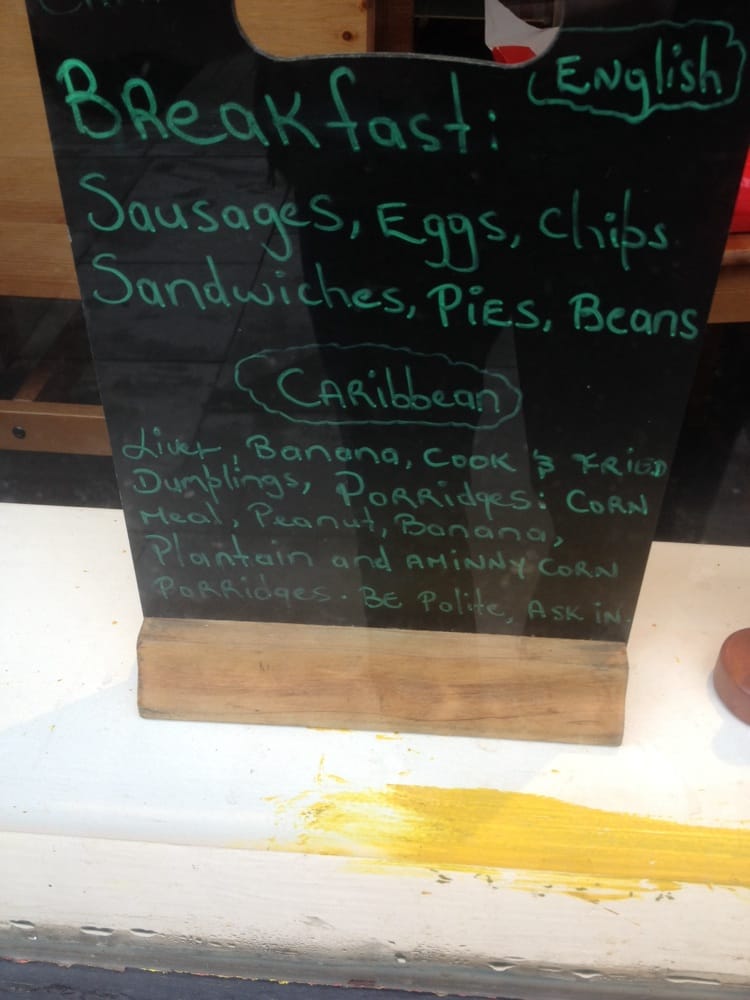 Breakfast: English
Sausages, Eggs, Chips
Sandwiches, Pies, Beans
CARibbean
Liver, Banana, COOK & FRIED
Dumplings, Porridges: CORN
Meal, Peanut, Banana,
Plantain and AMINNY CORN
PoRRidges. BE Polite, ASK iN.